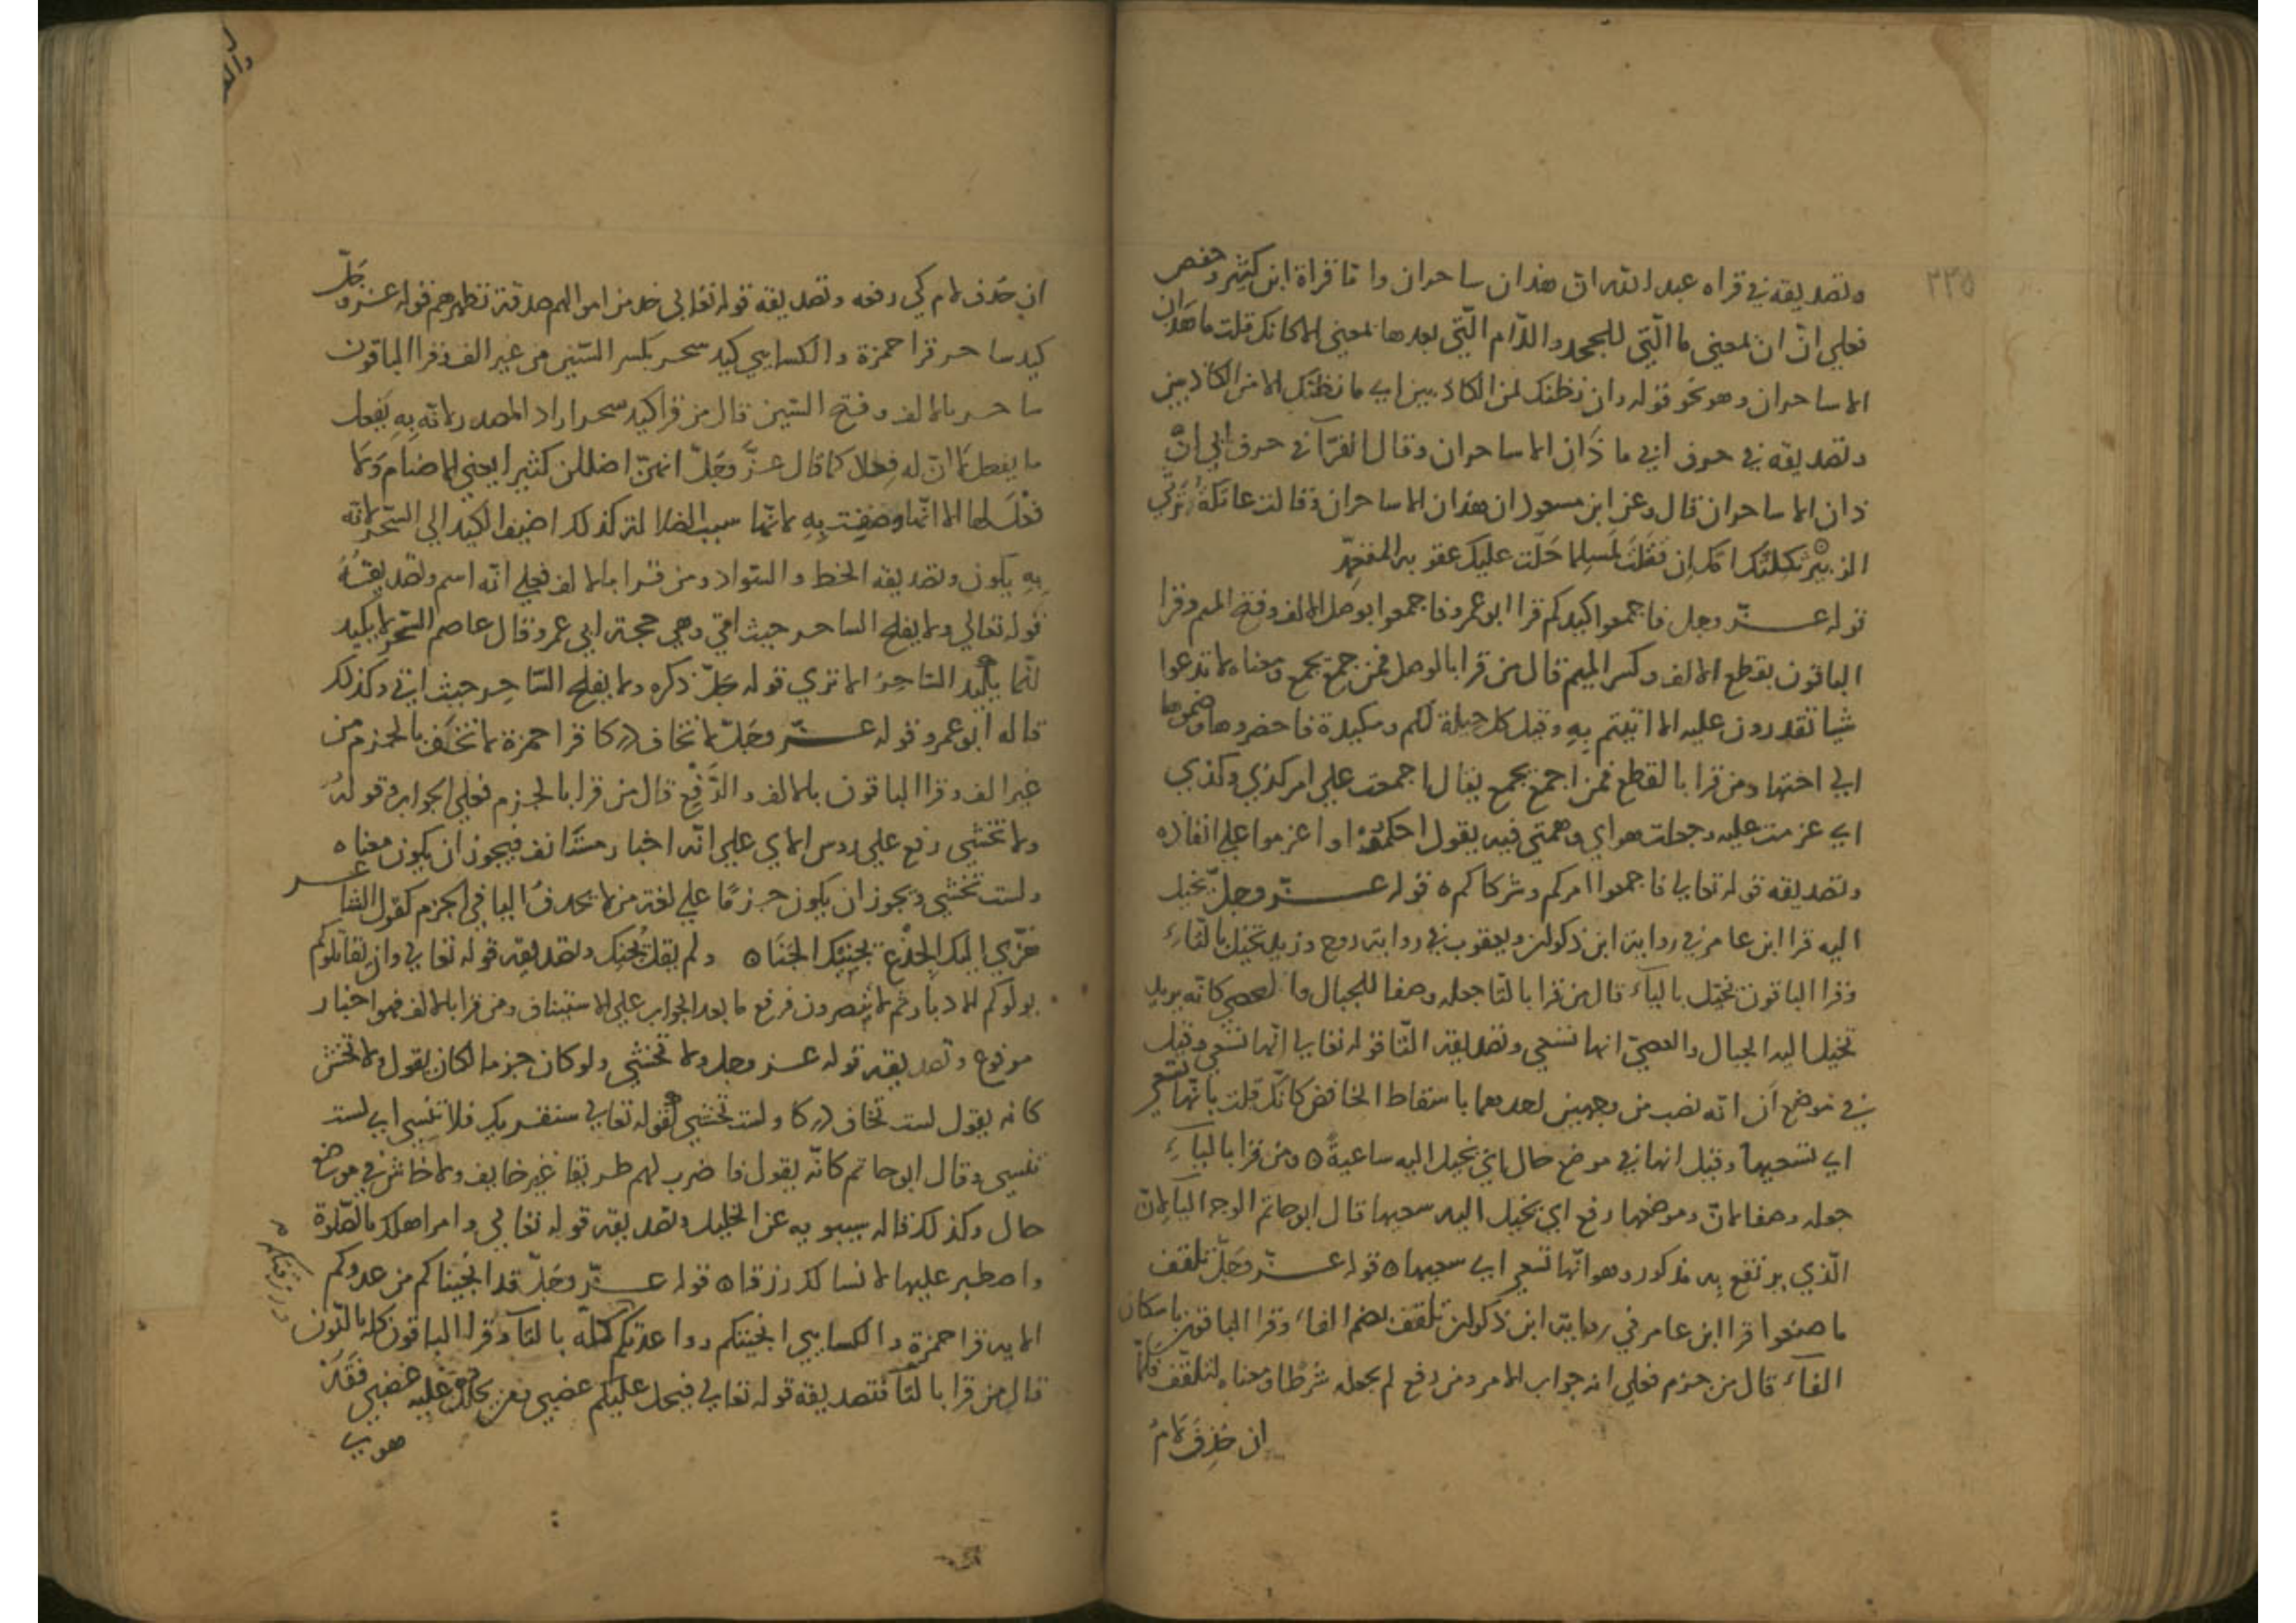 ٢٣٥
وتصديقه في قراة عبد الله ان هذان ساحران واما قراة ابن كثير وحفص
فعلي انّ ان بمعني ما الّتي للجحد واللّام الّتي بعدها بمعني الا كانك قلت ما هذان
الا ساحران وهو نحو قوله وان نظنك لمن الكاذبين اي ما نظنّك الا من الكاذبين
وتصديقه في حرف ابي ما ذَان الا ساحران وقال الفرّآ في حرف ابي انّ
ذان الا ساحران قال وعن ابن مسعود ان هذان الا ساحران وقالت عاتكةُ ترثي
الزبير ثكلتك امّك اِن قتلتَ لمسلما حَلّت عليك عقوبه المتعمّد
قوله عزّ وجل فاجمعوا كيدكم قرا ابو عمرو فاجمعوا بوصل الالف وفتح الميم وقرا
الباقون بقطع الالف وكسر الميم قال من قرا بالوصل فمن جمع يجمع ومعناه لا تدعوا
شيا تقدرون عليه الا اتيتم بِهِ وقيل كل حيلة لكم ومكيدة فاحضروها وضموها
الي اختها ومن قرا بالقطع فمن اجمع يجمع يقال اجمعت علي امر كذي وكذي
اي عزمت عليه وجعلت هواي وهمتي فيه يقول احكموه او اعزموا علي انفاذه
وتصديقه قوله تعالي فاجمعوا امركم وشركاكم ه قوله عزّ وجلّ يخيل
اليه قرا ابن عامر في رواية ابن ذكوان ويعقوب في رواية روح وزيد تخيل بالتّاءِ
وقرا الباقون يخيّل باليآء قال من قرا بالتا جعله وصفا للحبال والعصي كانّه يريد
تخيل اليه الحبال والعصيّ انها تسعي وتصديقه التّا قوله تعالي انّها تسعي وقيل
في موضع اَن انّه نصب من وجهين احدهما باسقاط الخافض كانّك قلت بانّها تسعي
اي تسعيها وقيل انها في موضع حال اي تخيل اليه ساعيةً ه ومن قرا باليآءِ
جعله وصفا لانّ وموضعها رفع اي يخيل اليه سعيها قال ابو حاتم الوجه اليآ لانّ
الّذي يرتفع بِه مذكور وهو انّها تسعي اي سعيها ه قوله عزّ وجَلّ تلقف
ما صنعوا قرا ابن عامر في رواية ابن ذكوان تلقف بضم الفاء وقرا الباقون باسكان
الفآء قال من جزم فعلي انه جواب الامر ومن رفع لم يجعله شرطًا ومعناه لتلقّف فلمّا
ان حُذِفَ لامُ
ان حُذف لام كي رفعه وتصديقه قوله تعالي خذ من اموالهم صدقة تطهرهم قوله عزّ وجَلّ
كيد ساحر قرا حمزة والكسايي كيد سحر بكسر السّين من غير الف وقرا الباقون
ساحر بالالف وفتح السّين قال من قرا كيد سحر اراد المصدر لانّه بِهِ يَفعل
ما يفعل لَا انّ له فِعلا كما قال عزَّ وجَلّ انهنّ اضللن كثيرا يعني الاصنام وَلَا
فعل لها الا انّها وصفت بِهِ لانّها سبب الضلالة كذلك اضيف الكيد الي السّحر لانّه
بِهِ يكون وتصديقه الخط والسّواد ومن قرا بالالف فعلي انّه اسم وتصديقُهُ
قوله تعالي ولا يفلح الساحر حيث اتي وهي حجة ابي عمرو وقال عاصم السّحر لا يكيد
انّما يكيد السّاحِرُ الا تري قوله جَلّ ذكره ولا يفلح السّاحِر حيث اتي وكذلك
قاله ابو عمرو قوله عزّ وجَلّ لا تخاف دركا قرا حمزة لا تخف بالجزم من
غير الف وقرا الباقون بالالف والرَّفْع قال من قرا بالجزم فعلي الجواب وقولهُ
ولا تخشي رفع علي روس الاي علي انّه اخبار مستانف فيجوز ان يكون معناه
ولست تخشي ويجوز ان يكون جزمًا علي لغة من لا يحذفُ اليا في الجزم كقول الشاعر
هزّي اليك الجذع يجنيك الجَنَا ه ولم يقل يُجنِك وتصديقه قوله تعالي وان يقاتلوكم
يولّوكم الادبار ثم لا ينصرون فرفع ما بعد الجواب علي الاستيناف ومن قرا بالالف فهو اخبار
مرفوع وتصديقه قوله عز وجل ولا تخشي ولو كان جزما لكان يقول ولا تخش
كانه يقول لست تخاف دركا ولست تخشي كقوله تعالي سنقريك فلا تنسي اي لست
تنسي وقال ابو حاتم كانّه يقول فاضرب لهم طريقا غير خايف ولا خاش في موضع
حال وكذلك قاله سيبويه عن الخليل وتصديقه قوله تعالي وامر اهلك بالصّلوة
واصطبر عليها لا نسالك رزقا ه قوله عزّ وجَلّ قد انجيناكم من عدوكم
ورزقنكم
الايه قرا حمزة والكسايي انجيتكم وواعدتكم كله بالتآ وقرا الباقون كله بالنّون
قال من قرا بالتّآ فتصديقه قوله تعالي فيحل عليكم غضبي ومن يحلل عليه غضبي فَقَدْ
هوي